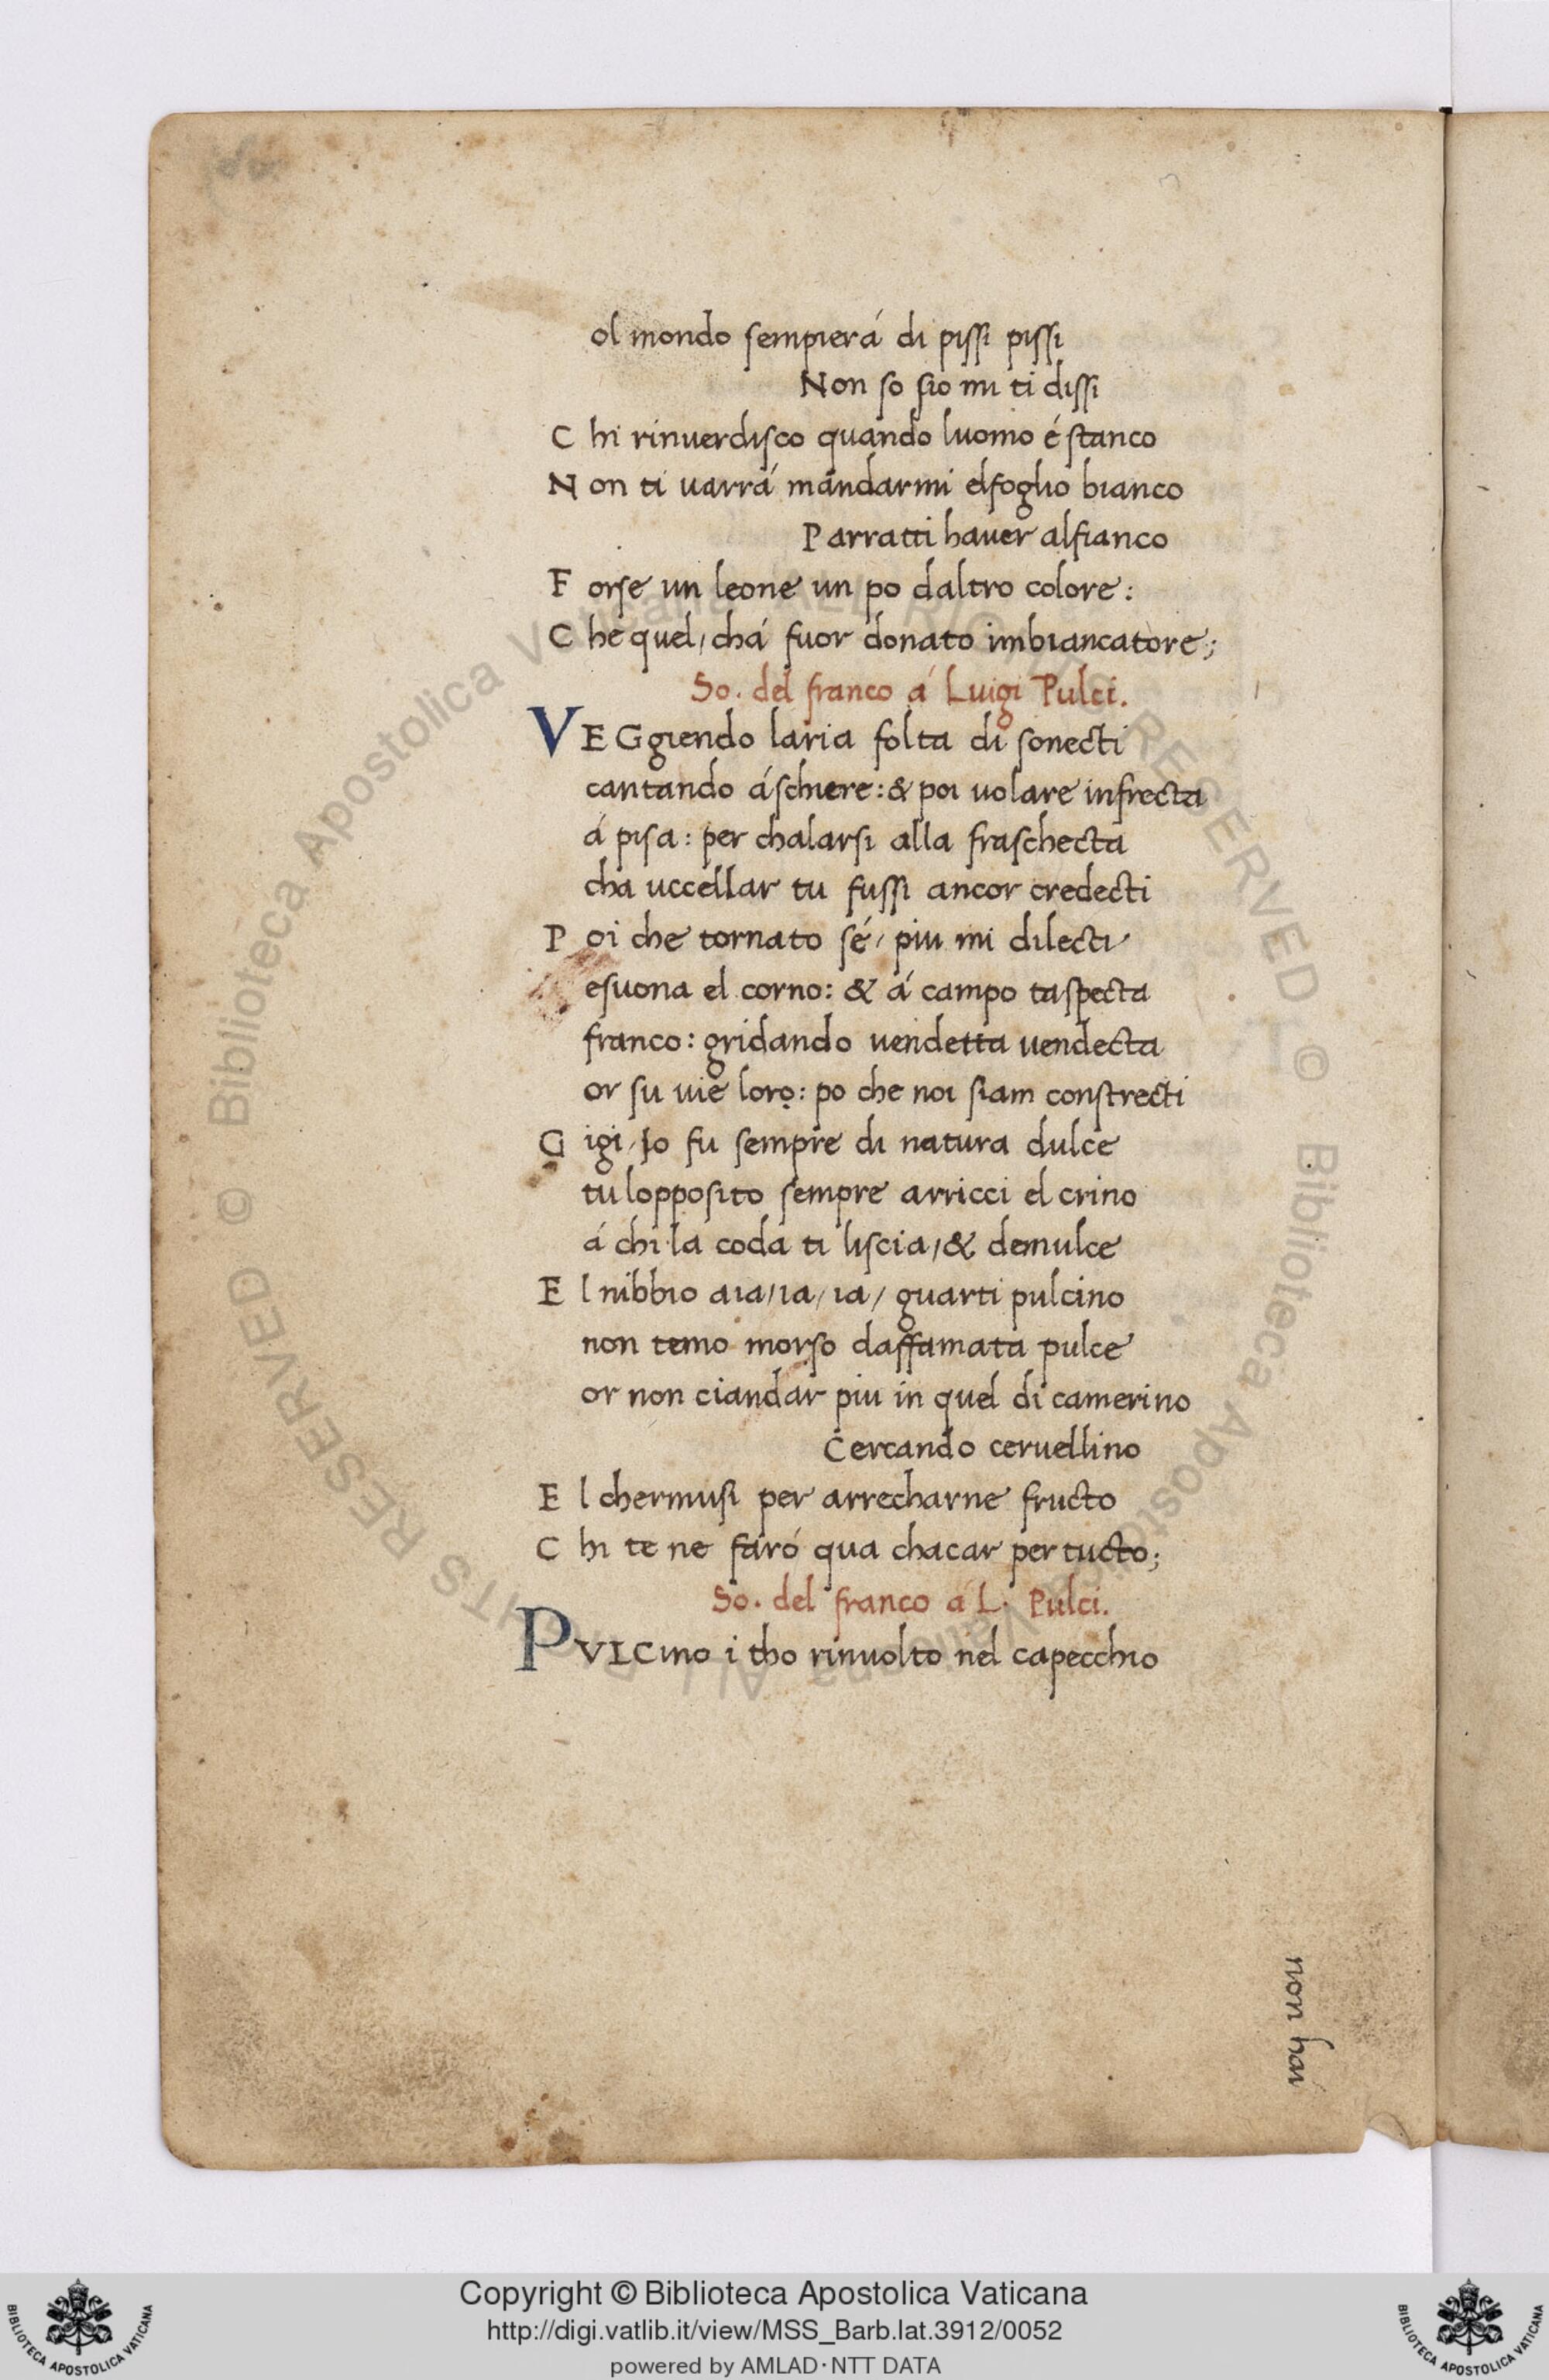 ol mondo sempierá di pissi pissi
Non so sio mi ti dissi
C hi rinuerdisco quando luomo é stanco
N on ti uarrá mandarmi elfoglio bianco
P arratti hauer alfianco
F orse un leone un po daltro colore:
C he quel/ chá fuor donato imbiancatore;
So. del franco á Luigi Pulci.
VEGgiendo laria folta di sonecti
cantando á schiere: & poi uolare infrecta
á pisa: per chalarsi alla fraschecta
cha uccellar tu fussi ancor credecti
P oi che tornato sé/ piu mi dilecti
esuona el corno: & á campo taspecta
franco: gridando uendetta uendecta
or su uie loro: po che noi siam constrecti
G igi/ Io fu sempre di natura dulce
tu lopposito sempre arricci el crino
á chi la coda ti liscia/ & demulce
E l nibbio aia/ ia/ ia/ guarti pulcino
non temo morso daffamata pulce
or non ciandar piu in quel di camerino
Cercando ceruellino
E l chermusi per arrecharne fructo
C hi te ne faró qua chacar per tucto;
So. del franco á L. Pulci.
PVLCino i tho rinuolto nel capecchio
non hai
© Biblioteca Apostolica Vaticana ALL RIGHTS RESERVED
© Biblioteca Apostolica Vaticana ALL RIGHTS RESERVED
Copyright © Biblioteca Apostolica Vaticana
http://digi.vatlib.it/view/MSS_Barb.lat.3912/0052
powered by AMLAD·NTT DATA
BIBLIOTECA APOSTOLICA VATICANA
BIBLIOTECA APOSTOLICA VATICANA